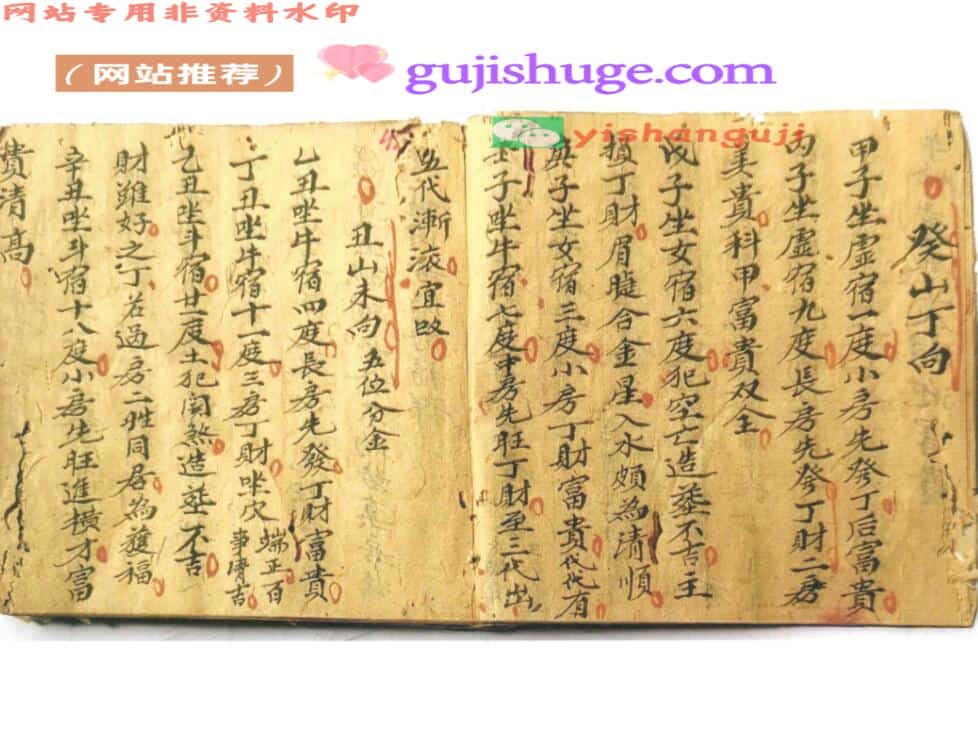 网站专用非资料水印
（网站推荐）
gujishuge.com
yishanguji
癸山丁向
甲子坐虛宿一度小房先癹丁后富貴
丙子坐虛宿九度長房先癹丁財二房
美貴科甲富貴双全
戊子坐女宿六度犯空亡造塟不吉主
損丁財眉睫合金星入水頗為清順
庚子坐女宿三度小房丁財富貴代代有
壬子坐牛宿七度中房先旺丁財至三代出
五代漸滾宜改
丑山未向五位分金
乙丑坐牛宿四度長房先發丁財富貴
丁丑坐牛宿十一度三房丁財坐穴端正百事濟吉
乙丑坐斗宿廿一度土犯関煞造塟不吉
財雖好之丁若過房二姓同居為獲福
辛丑坐斗宿十八度小房先旺進横才富
貴清高